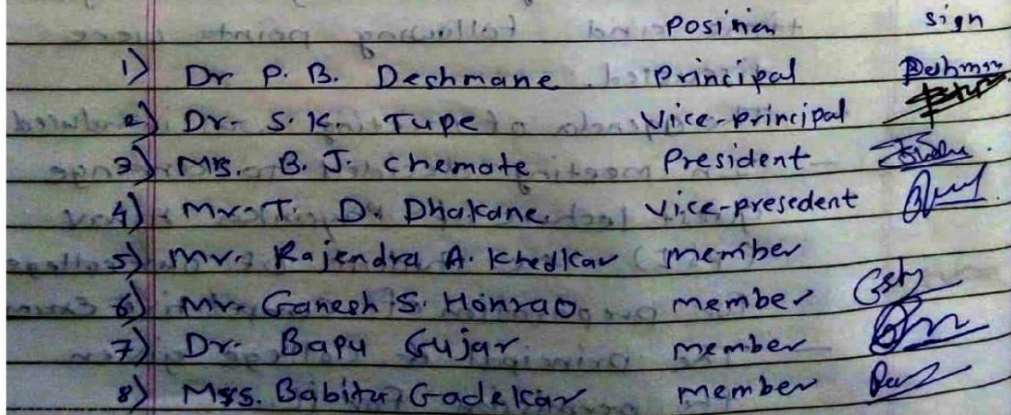 Posinen sign
1) Dr P. B. Deshmane Principal Deshman
2) Dr. S. K. Tupe Vice-principal
3) Mrs. B. J. Chemate President
4) Mr. T. D. Dhakane Vice-presedent
5) Mr. Rajendra A. Khedkar member
6) Mr. Ganesh S. Honrao member
7) Dr. Bapu Gujar member
8) Mss. Babita Gadekar member